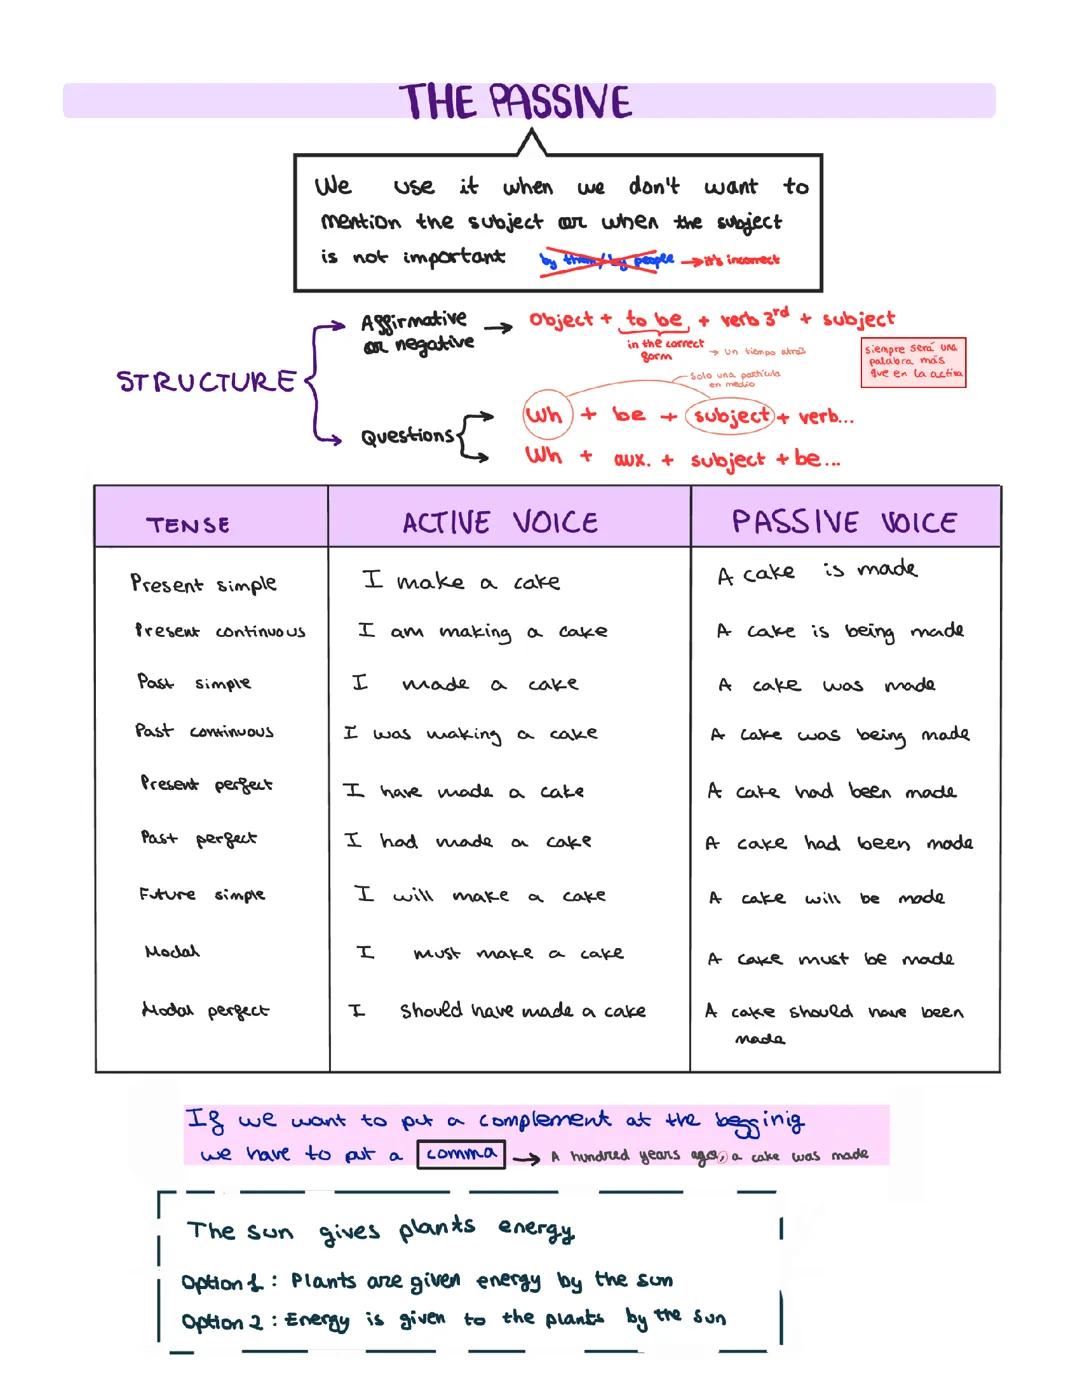 THE PASSIVE
We use it when we don't want to
mention the subject or when the subject
is not important by them/by people → it's incorrect
STRUCTURE
Affirmative
or negative → Object + to be + verb 3rd + subject
in the correct
form → Un tiempo atrás
siempre será una
palabra más
que en la activa
Solo una partícula
en medio
Questions
Wh + be + subject + verb...
Wh + aux. + subject + be...
TENSE ACTIVE VOICE PASSIVE VOICE
Present simple I make a cake A cake is made
Present continuous I am making a cake A cake is being made
Past simple I made a cake A cake was made
Past continuous I was making a cake A cake was being made
Present perfect I have made a cake A cake had been made
Past perfect I had made a cake A cake had been made
Future simple I will make a cake A cake will be made
Modal I must make a cake A cake must be made
Modal perfect I should have made a cake A cake should have been
made
If we want to put a complement at the begginig
we have to put a comma → A hundred years ago, a cake was made
The sun gives plants energy
Option 1: Plants are given energy by the sun
Option 2: Energy is given to the plants by the sun